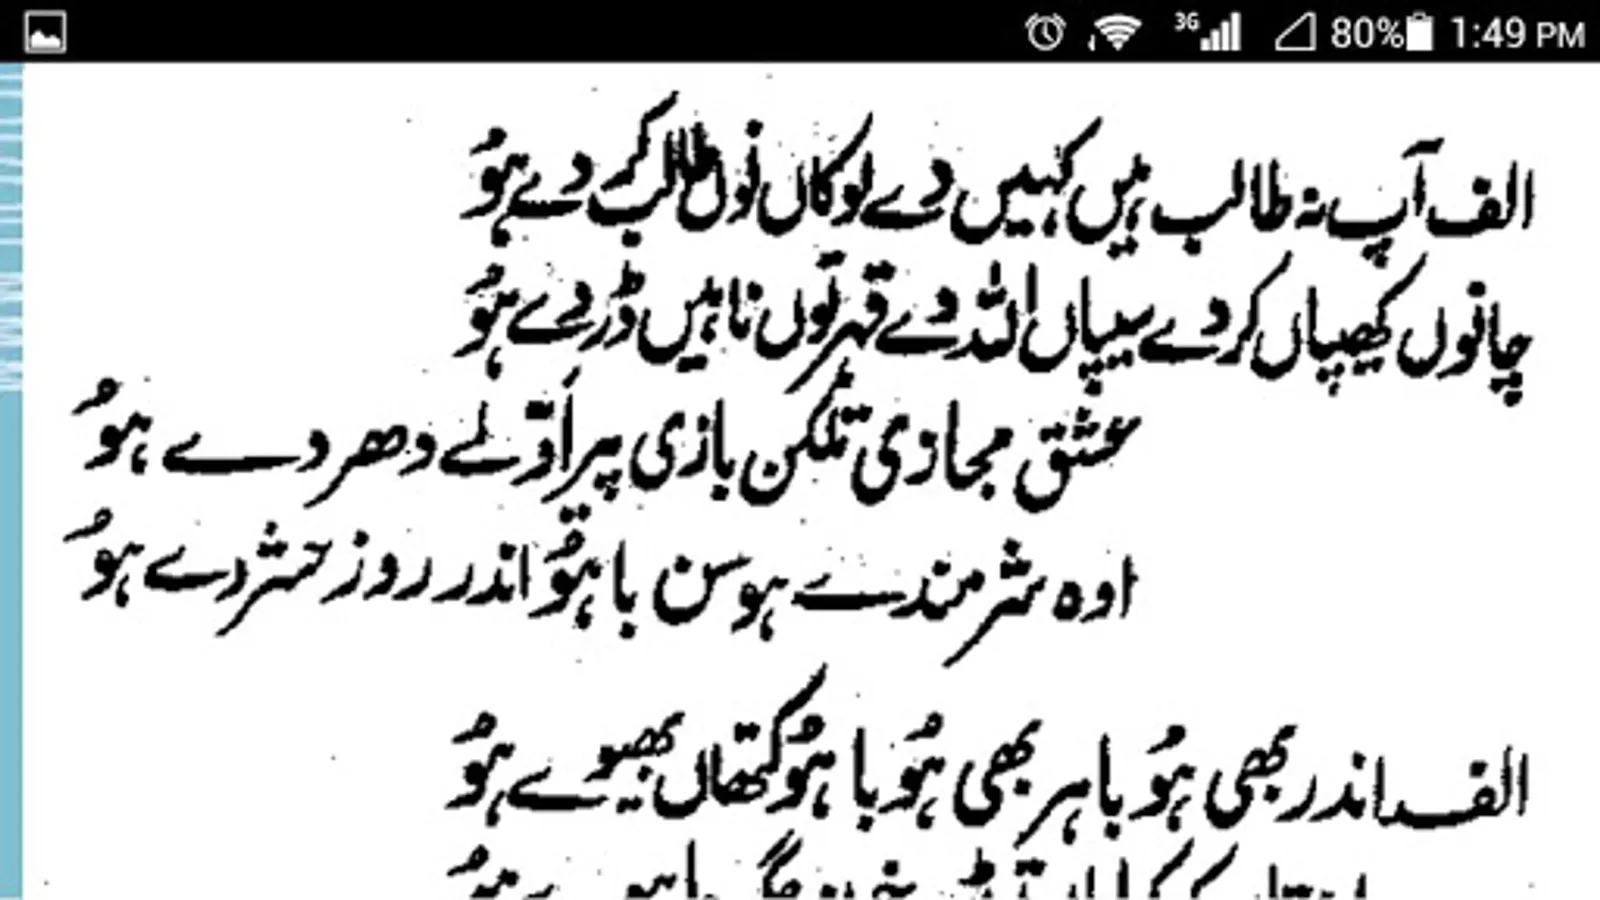 3G 80% 1:49 PM
الف آپ نہ طالب ہیں کہیں دے لوکاں نوں طالب کر دے ہوُ
چانوں کھیپاں کر دے سیپاں اللہ دے قہر توں ناہیں ڈر دے ہوُ
عشق مجازی تلکن بازی پیر اَوّلے دھر دے ہوُ
اوہ شرمندے ہوسن باہوُ اندر روز حشر دے ہوُ
الف اندر بھی ہوُ باہر بھی ہوُ باہوُ کتھاں لبھیوے ہوُ